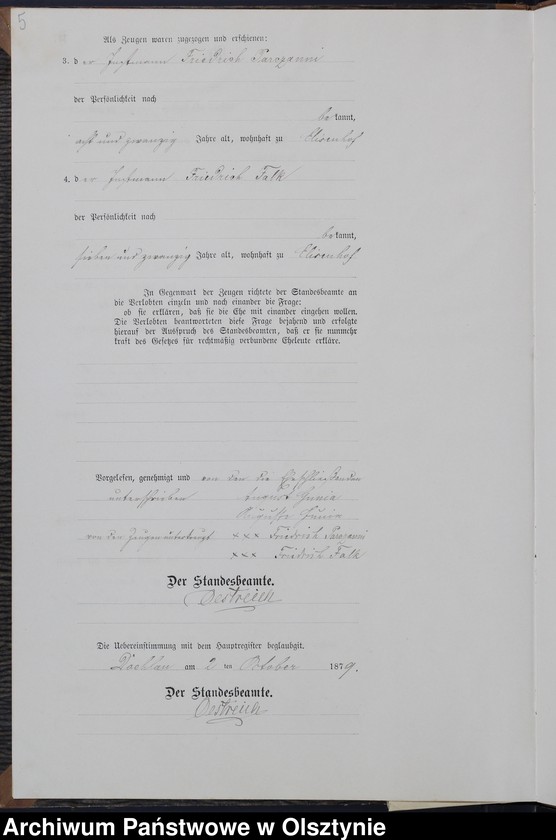 5
Als Zeugen waren zugezogen und erschienen:
3. der Instmann Friedrich Parczanni
der Persönlichkeit nach
bekannt,
acht und zwanzig Jahre alt, wohnhaft zu Elisenhof
4. der Instmann Friedrich Falk
der Persönlichkeit nach
bekannt,
sieben und zwanzig Jahre alt, wohnhaft zu Elisenhof
In Gegenwart der Zeugen richtete der Standesbeamte an
die Verlobten einzeln und nach einander die Frage:
ob sie erklären, daß sie die Ehe mit einander eingehen wollen.
Die Verlobten beantworteten diese Frage bejahend und erfolgte
hierauf der Ausspruch des Standesbeamten, daß er sie nunmehr
kraft des Gesetzes für rechtmäßig verbundene Eheleute erkläre.
Vorgelesen, genehmigt und von den die Eheschließenden
unterschrieben August
Auguste
von den Zeugen unterkreuzt xxx Friedrich Parczanni
xxx Friedrich Falk
Der Standesbeamte.
Oestreich
Die Uebereinstimmung mit dem Hauptregister beglaubigt.
am 2 ten October 1879.
Der Standesbeamte.
Oestreich
Archiwum Państwowe w Olsztynie